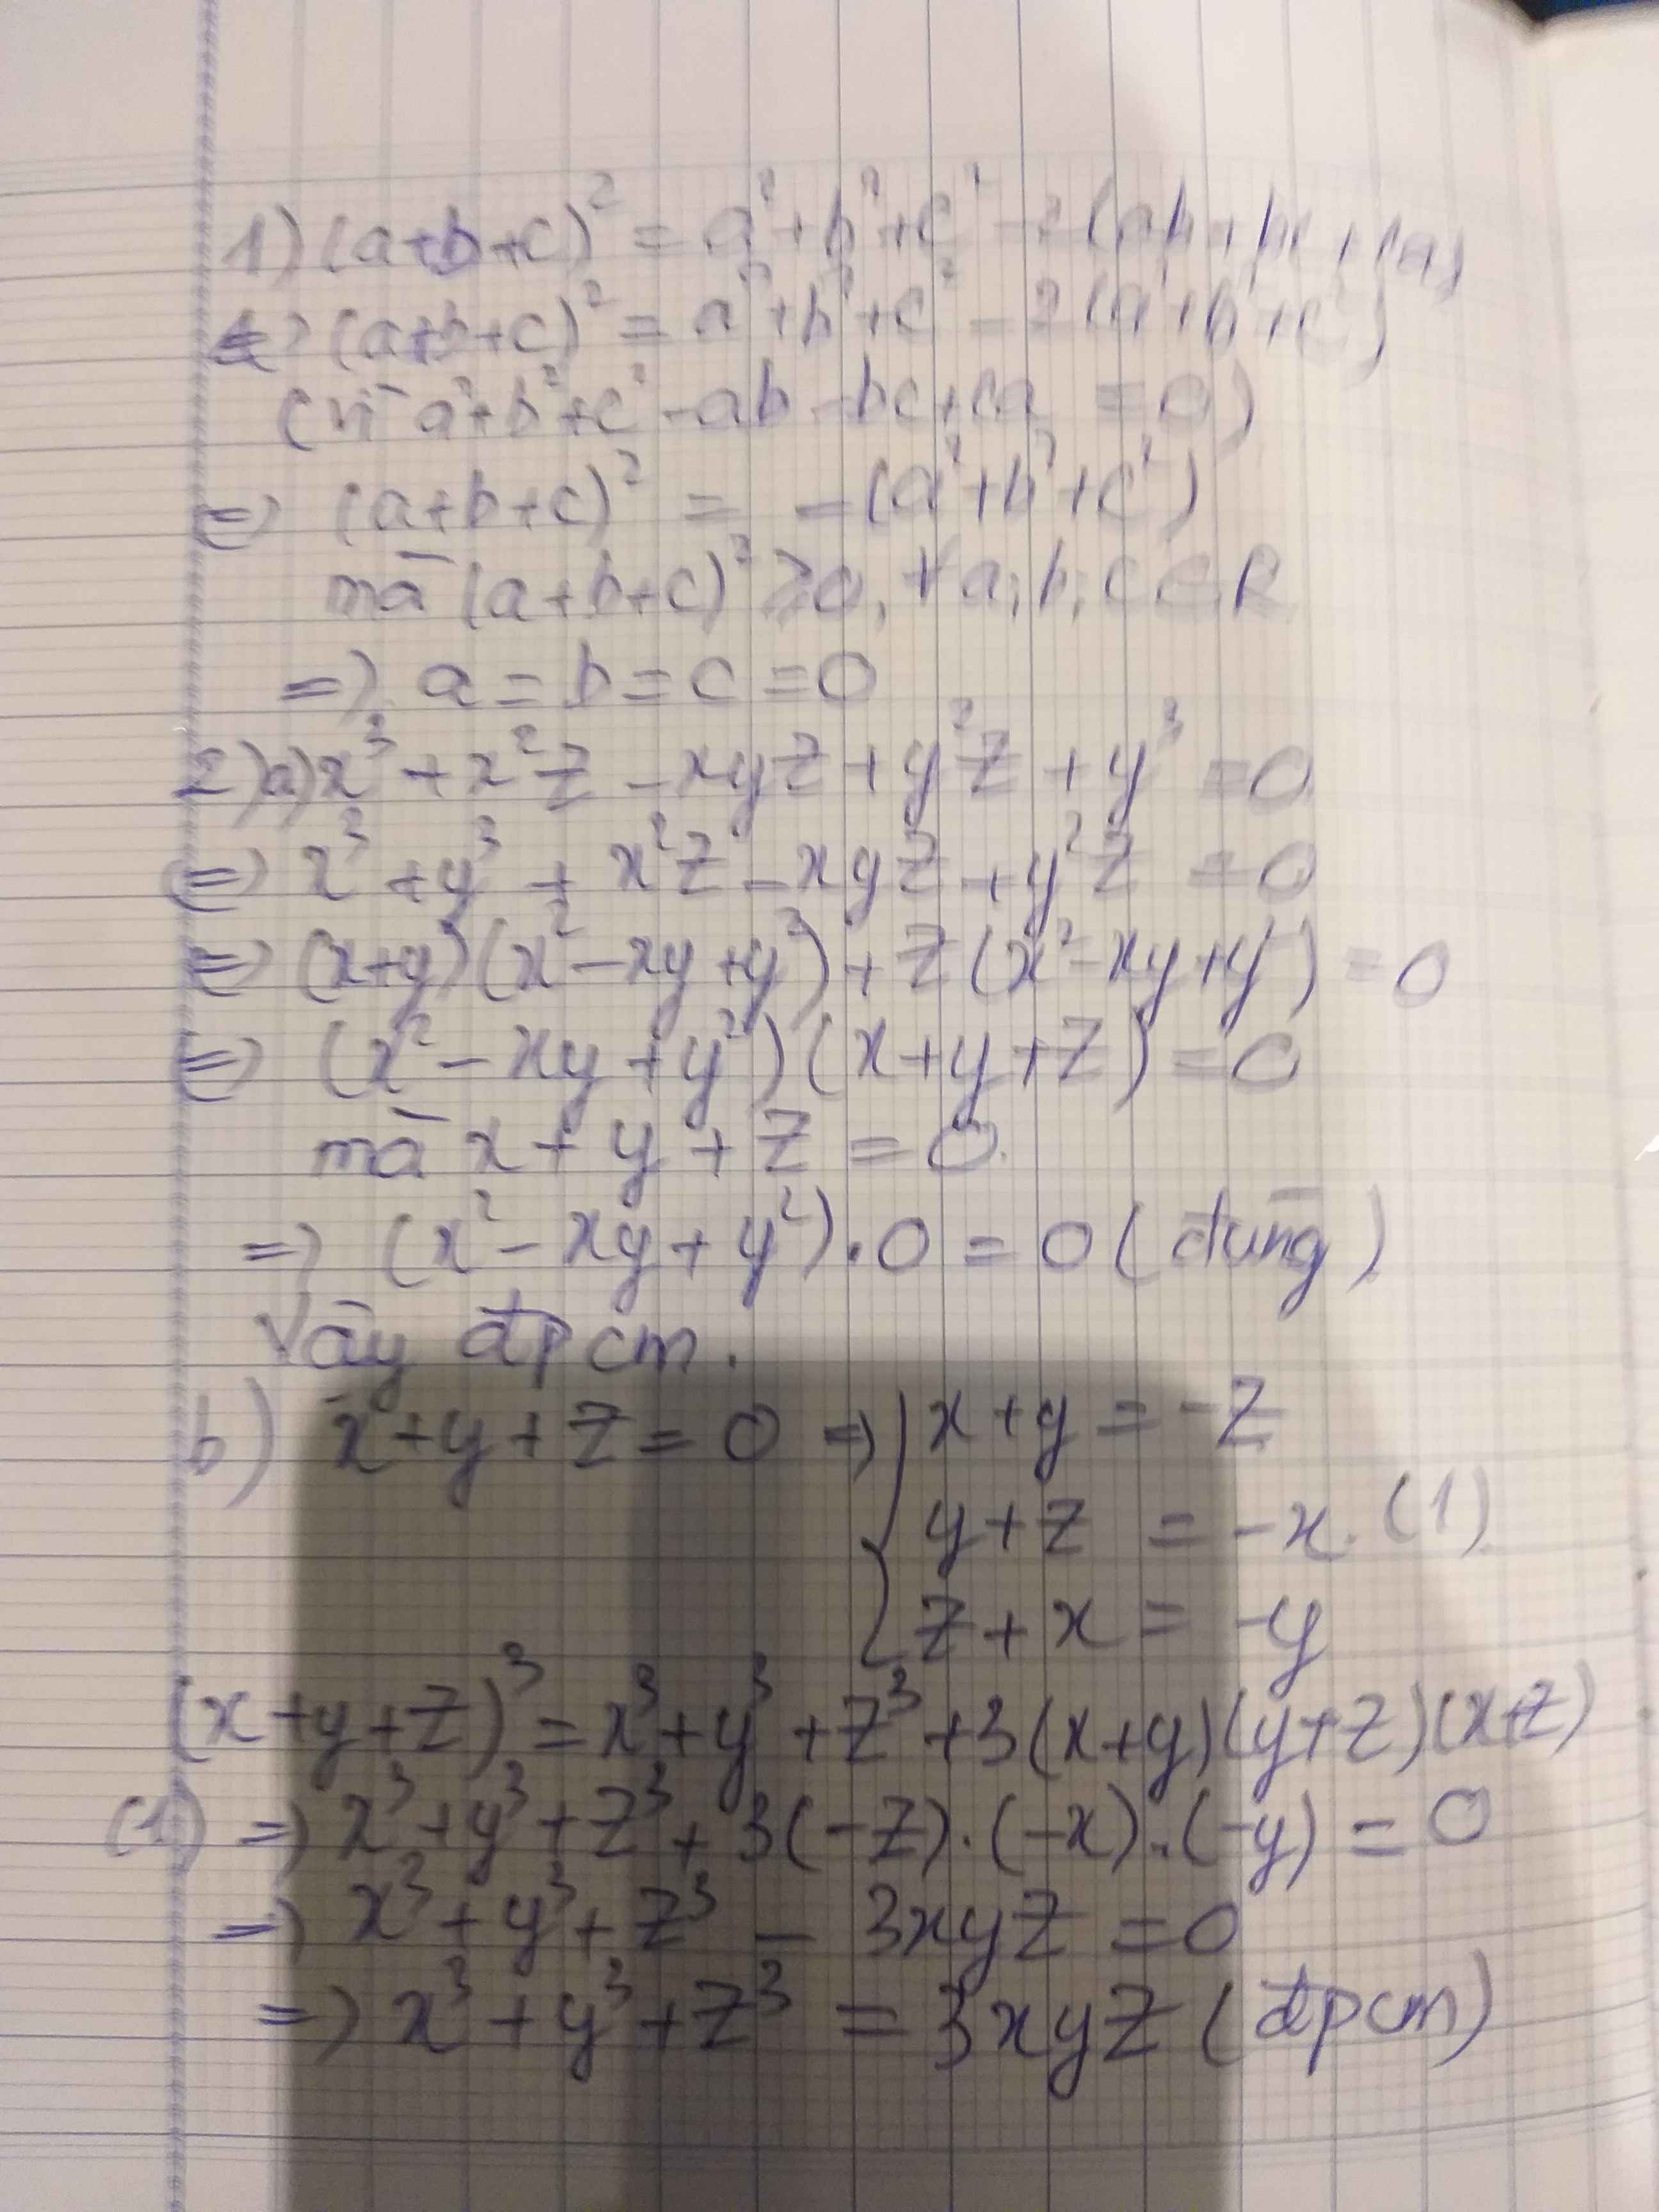 1) (a+b+c)² = a²+b²+c² - 2(ab+bc+ca)
<=> (a+b+c)² = a²+b²+c² - 2(a²+b²+c²)
(vì a²+b²+c² - ab - bc + ca = 0)
<=> (a+b+c)² = -(a²+b²+c²)
mà (a+b+c)² ≥ 0, ∀ a, b, c ∈ R
=> a = b = c = 0
2) a) x³ + x²z - xyz + y²z + y³ = 0
<=> x³ + y³ + x²z - xyz + y²z = 0
<=> (x+y)(x² - xy + y²) + z(x² - xy + y²) = 0
<=> (x² - xy + y²)(x + y + z) = 0
mà x + y + z = 0
=> (x² - xy + y²) . 0 = 0 (đúng)
Vậy đpcm.
b) x + y + z = 0 => { x + y = -z
y + z = -x (1)
z + x = -y
(x + y + z)³ = x³ + y³ + z³ + 3(x+y)(y+z)(x+z)
(1) => x³ + y³ + z³ + 3(-z).(-x).(-y) = 0
=> x³ + y³ + z³ - 3xyz = 0
=> x³ + y³ + z³ = 3xyz (đpcm)